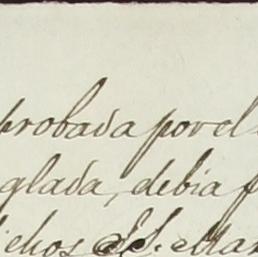 probada por el
glada, debia
ichos